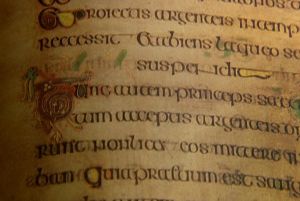 roiectis argenteis intemp
recessit & abiens laqueo se
suspendit
Tunc autem princeps sace
tum acceptis argenteis di
runt non licet eos mittere in
ban quia praetium est sang